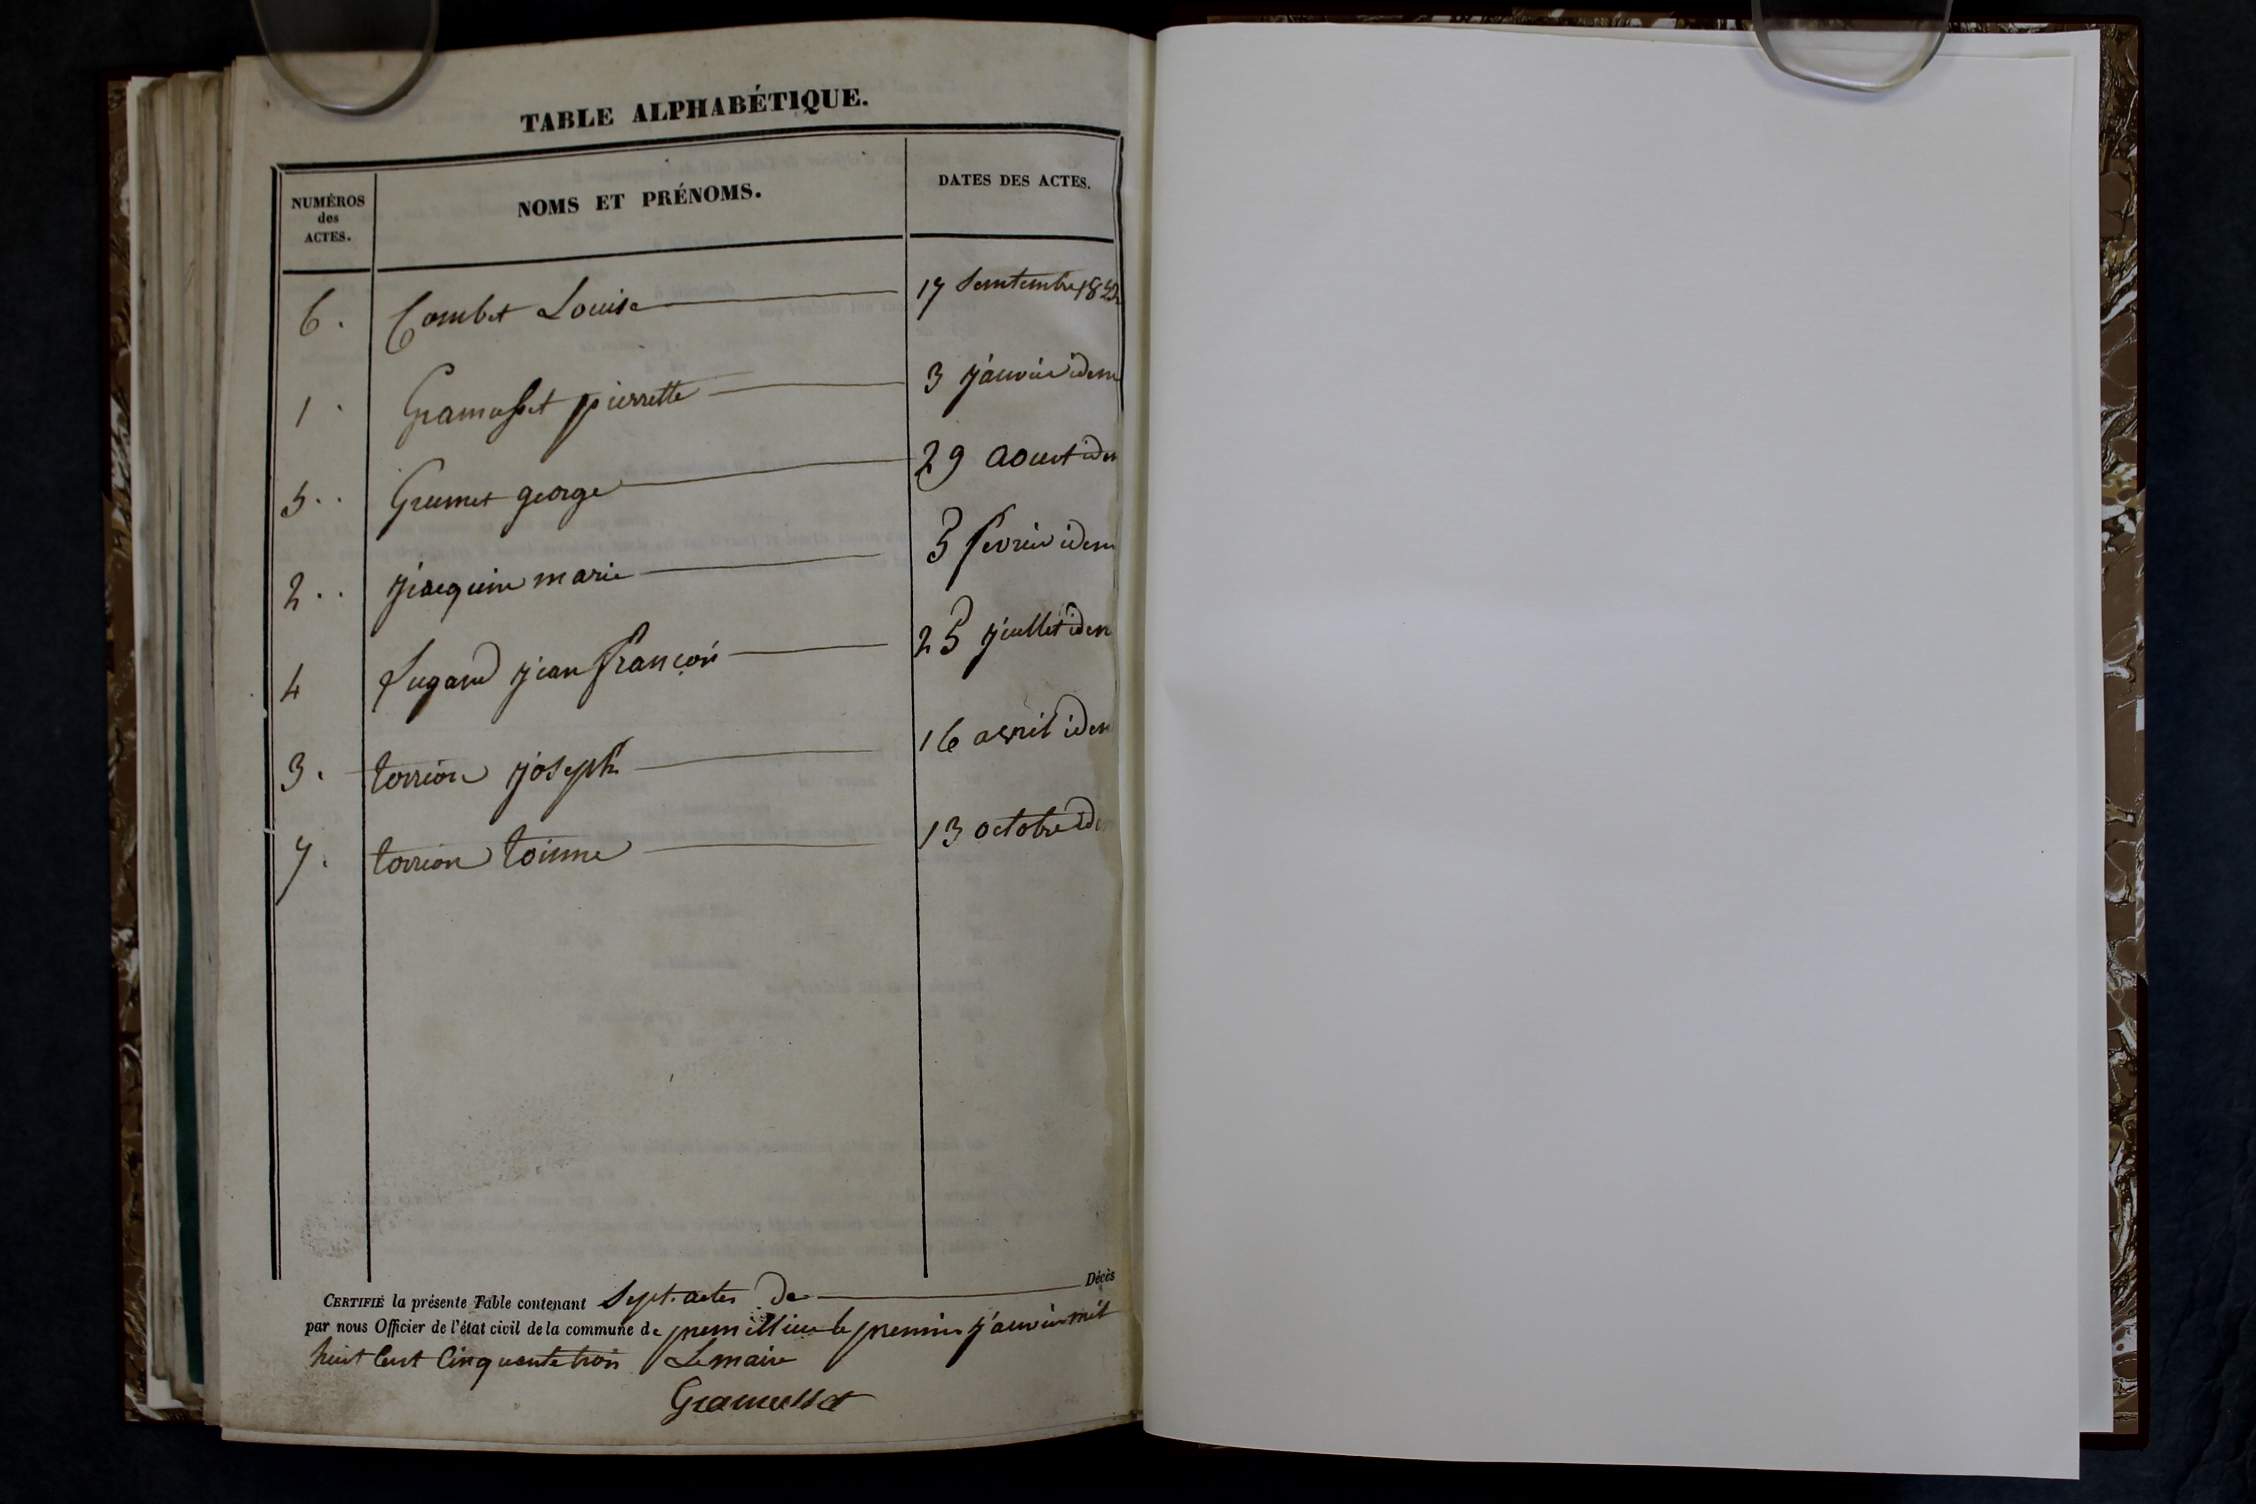 TABLE ALPHABÉTIQUE.
NUMÉROS des ACTES. NOMS ET PRÉNOMS. DATES DES ACTES.
6. Combet Louise 17 Semtembre 1852
1. Gramusset pierrette 3 janvier idem
5.. Grumet george 29 aoust idem
2.. jiacquin marie 5 fevrier idem
4 Sugand jean françois 25 juillet idem
3. torrion joseph 16 avril idem
7. torrion toinne 13 octobre idem
CERTIFIÉ la présente Table contenant Sept. actes de Décès
par nous Officier de l'état civil de la commune de premillieu le premier janvier mil
huit Cent Cinquante trois Le maire
Gramusset